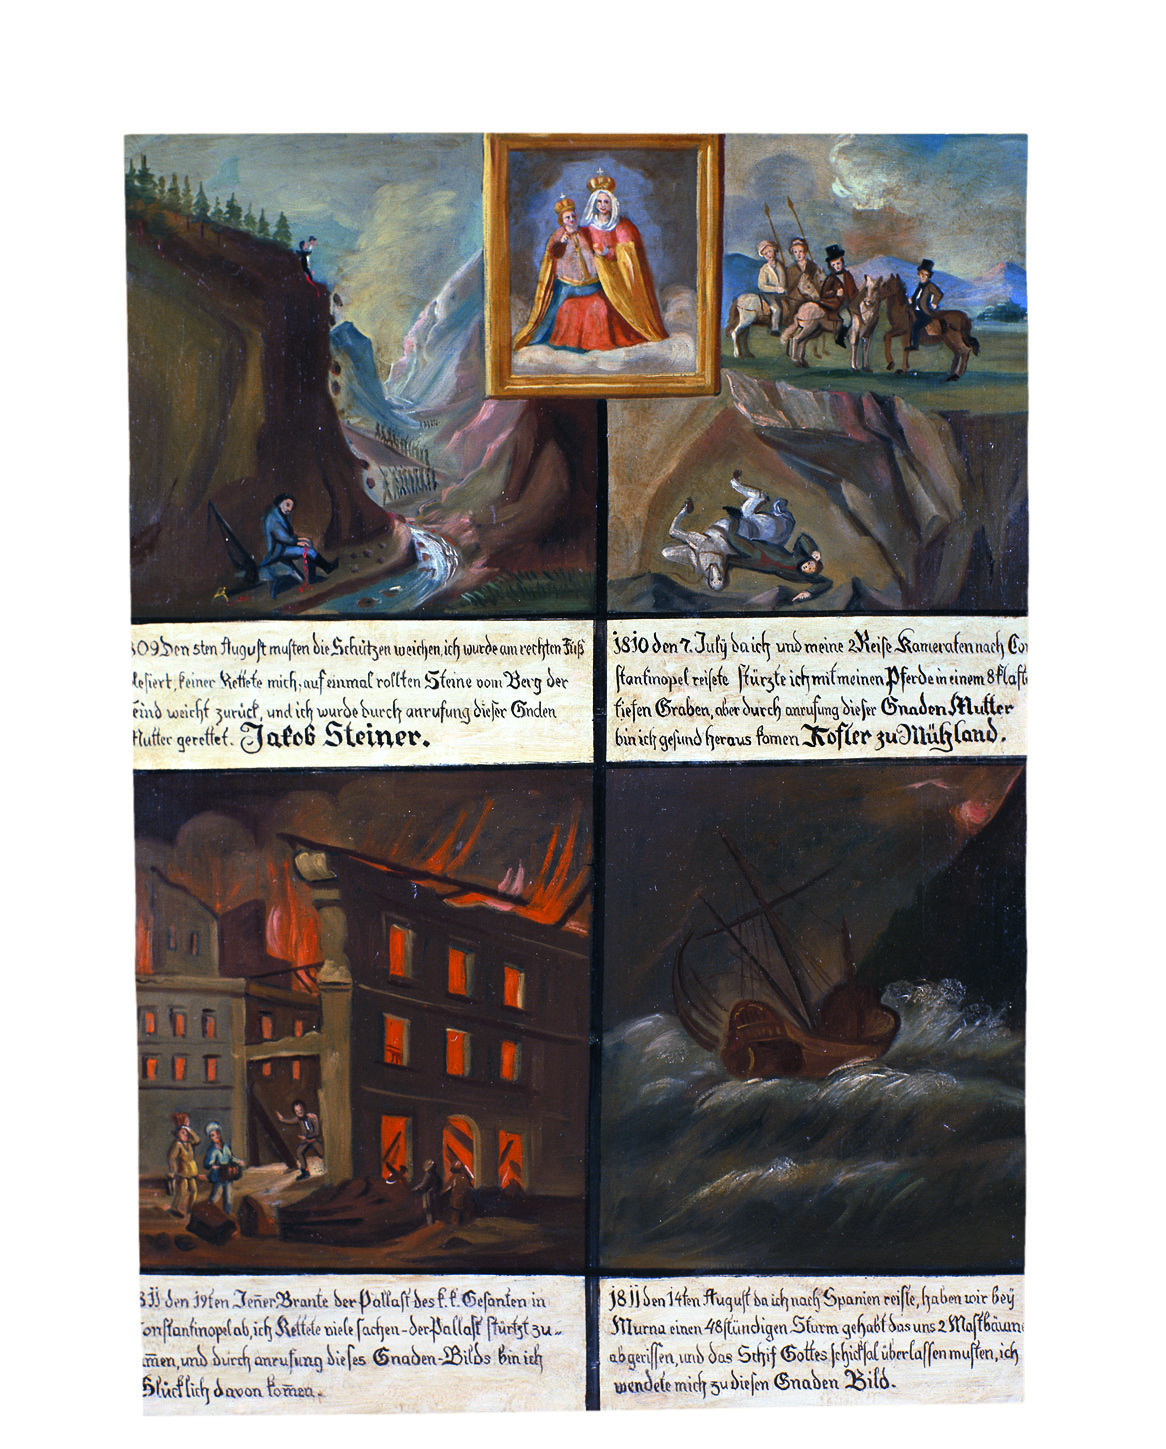 809 Den 5ten August musten die Schützen weichen, ich wurde am rechten Fuß
lesiert, keiner Rettete mich, auf einmal rollten Steine vom Berg der
eind weicht zurück, und ich wurde durch anrufung dieser Gnden
Mutter gerettet. Jakob Steiner.
1810 den 7. July da ich und meine 2 Reise Kameraten nach Con
stantinopel reisete stürzte ich mit meinen Pferde in einem 8 klaft
tiefen Graben, aber durch anrufung dieser Gnaden Mutter
bin ich gesund heraus komen Kofler zu Mühland.
811 den 19ten Jen̄er Brante der Pallast des k. k. Gesanten in
onstantinopel ab, ich Rettete viele sachen - der Pallast stürtzt zu=
am̄en, und durch anrufung dieses Gnaden-Bilds bin ich
Glücklich davon kom̄en.
1811 den 14ten August da ich nach Spanien reiste, haben wir bey
Murna einen 48stündigen Sturm gehabt das uns 2 Mastbäum
abgerissen, und das Schif Gottes schicksal überlassen musten, ich
wendete mich zu diesen Gnaden Bild.